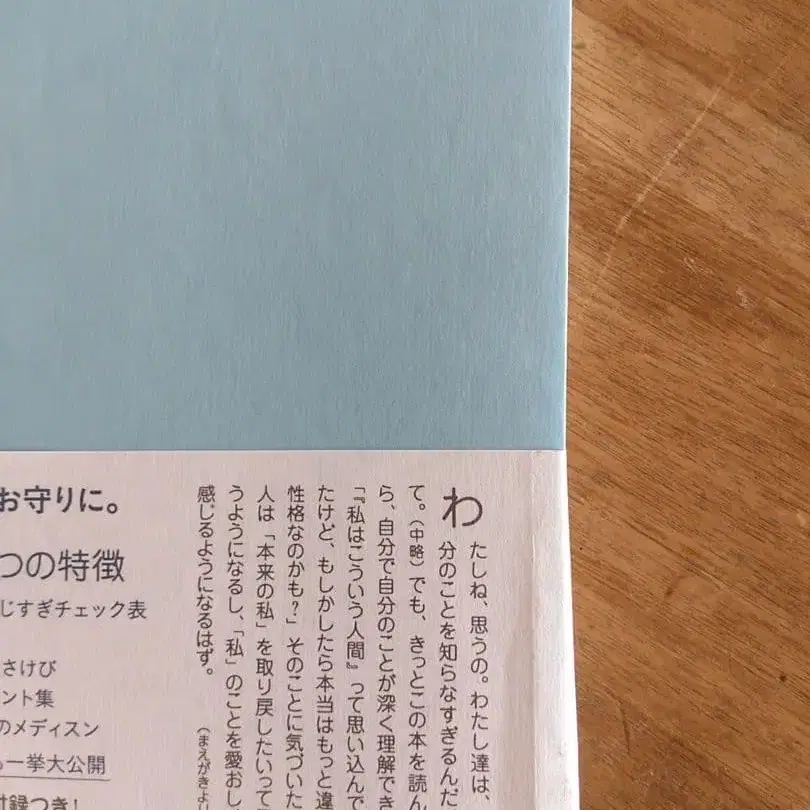 わたしね、思うの。わたし達は、
分のことを知らなすぎるんだ
て。（中略）でも、きっとこの本を読ん
ら、自分で自分のことが深く理解でき
「『私はこういう人間』って思い込んで
たけど、もしかしたら本当はもっと違
性格なのかも？」そのことに気づいた
人は「本来の私」を取り戻したいって
うようになるし、「私」のことを愛おし
感じるようになるはず。
（まえがきより
お守りに。
つの特徴
じすぎチェック表
さけび
ント集
のメディスン
一挙大公開
付録つき！